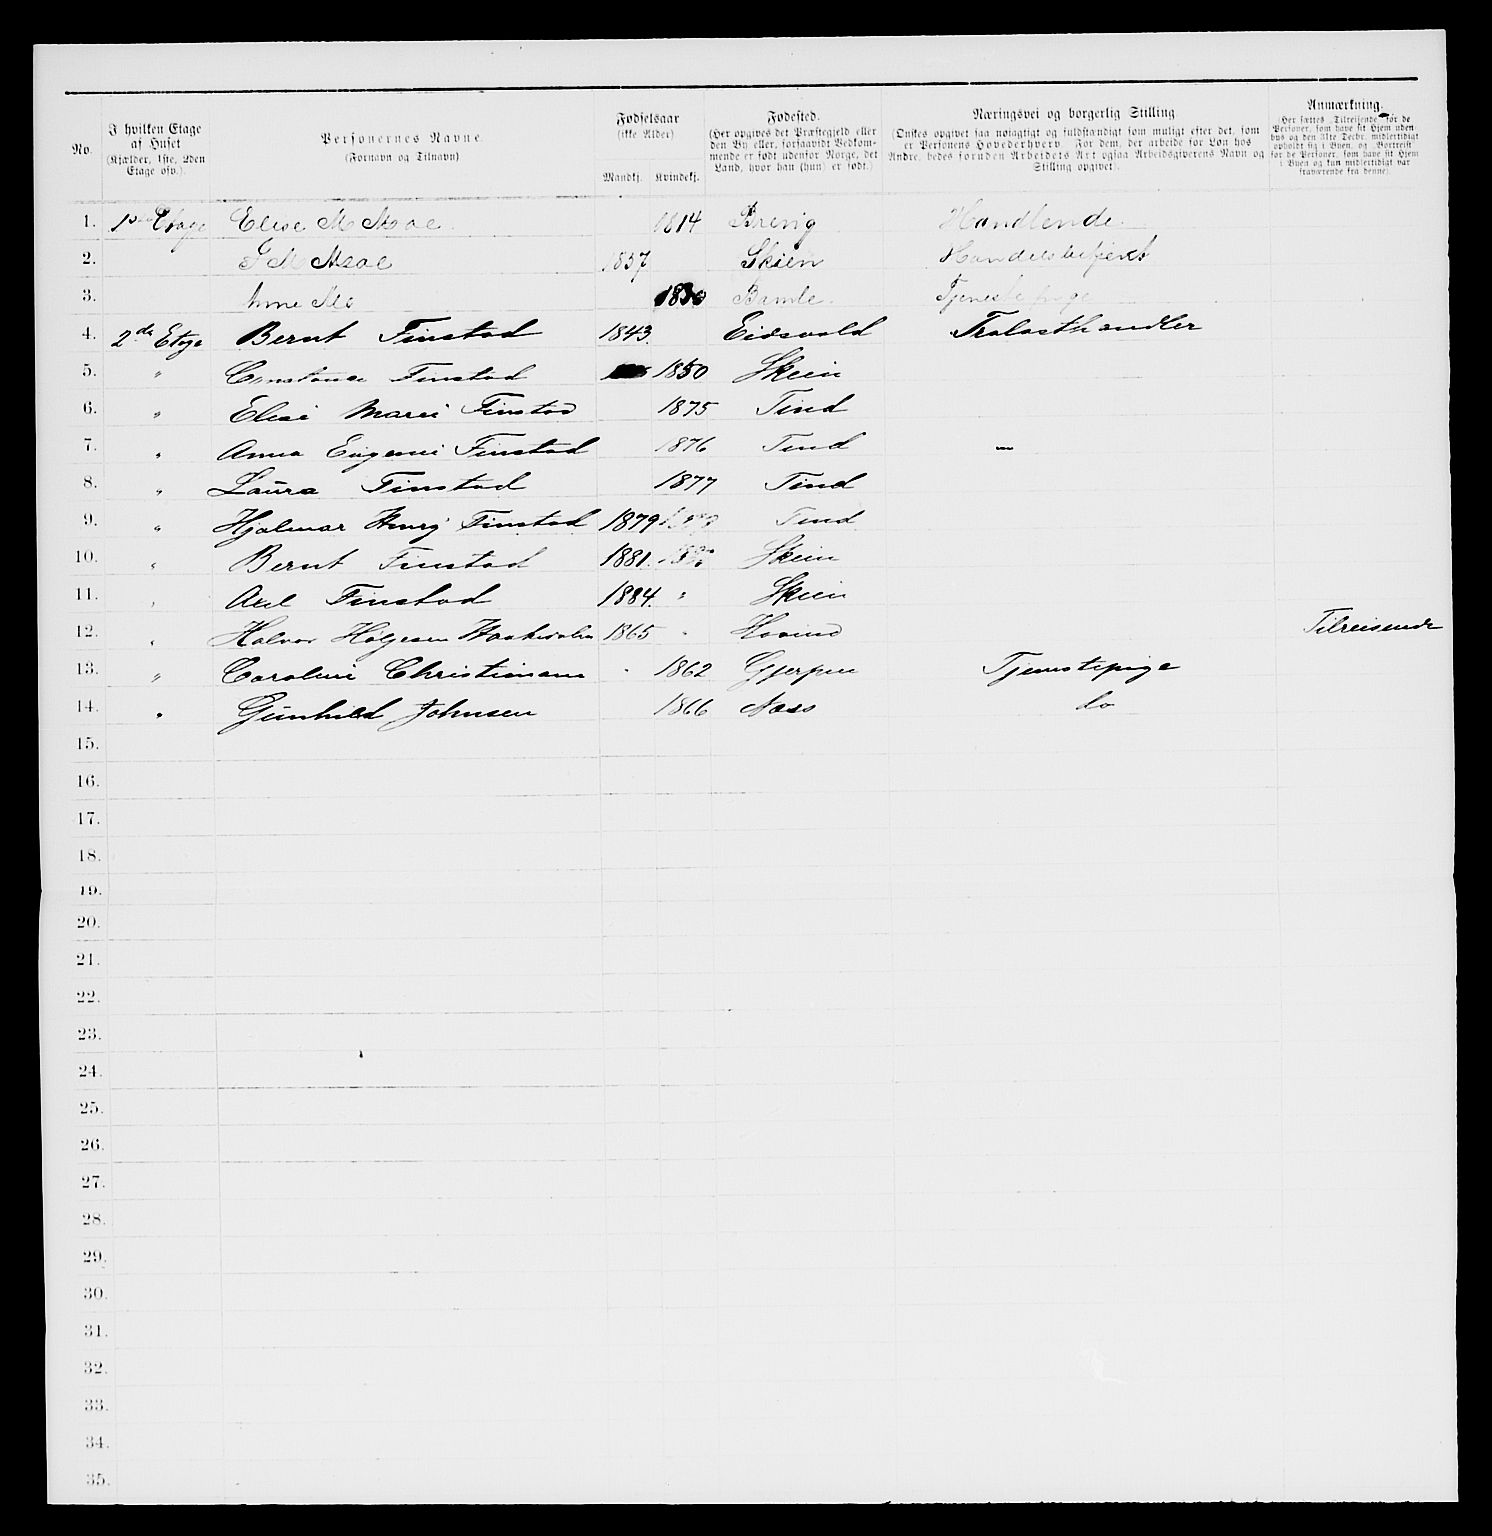 No.
I hvilken Etage af Huset (Kjælder, 1ste, 2den Etage osv.).
Personernes Navne. (Fornavn og Tilnavn)
Fødselsaar (ikke Alder) Mandkj. Kvindekj.
Fødested. (Her opgives det Præstegjeld eller den By eller, forsaavidt Vedkommende er født udenfor Norge, det Land, hvor han (hun) er født.)
Næringsvei og borgerlig Stilling. (Ønskes opgivet saa nøiagtigt og fuldstændigt som muligt efter det, som er Personens Hovederhverv. For dem, der arbeide for Løn hos Andre, bedes foruden Arbeidets Art ogsaa Arbeidsgiverens Navn og Stilling opgivet).
Anmærkning. (Her sættes „Tilreisende" for de Personer, som have sit Hjem udenbys og den 31te Decbr. midlertidigt opholdt sig i Byen, og „Bortreist" for de Personer, som have sit Hjem i Byen og kun midlertidigt var fraværende fra denne).
1. Etage Elise M 1814 Brevig Handlende
2. 1857 Skien
3. Bamle. Tjenestepige
4. 2de Etage Bernt Finstad 1843. Eidsvold Trælasthandler
5. " Constance Finstad 1850 Skien
6. " Elise Marie Finstad 1875 Tind
7. " Anna Eugenie Finstad 1876 Tind –
8. " Laura Finstad 1877 Tind
9. " Hjalmar Henry Finstad 1879 Tind
10. " Bernt Finstad 1881. Skien
11. " Axel Finstad 1884. " Skien
12. " Halvor Holgesen 1865 " Hovind Tilreisende
13. " Caroline Christiansen " 1862 Gjerpen Tjenestepige
14. " Gunhild Johnsen 1866 Næs do
15.
16.
17.
18.
19.
20.
21.
22.
23.
24.
25.
26.
27.
28.
29.
30.
31.
32.
33.
34.
35.